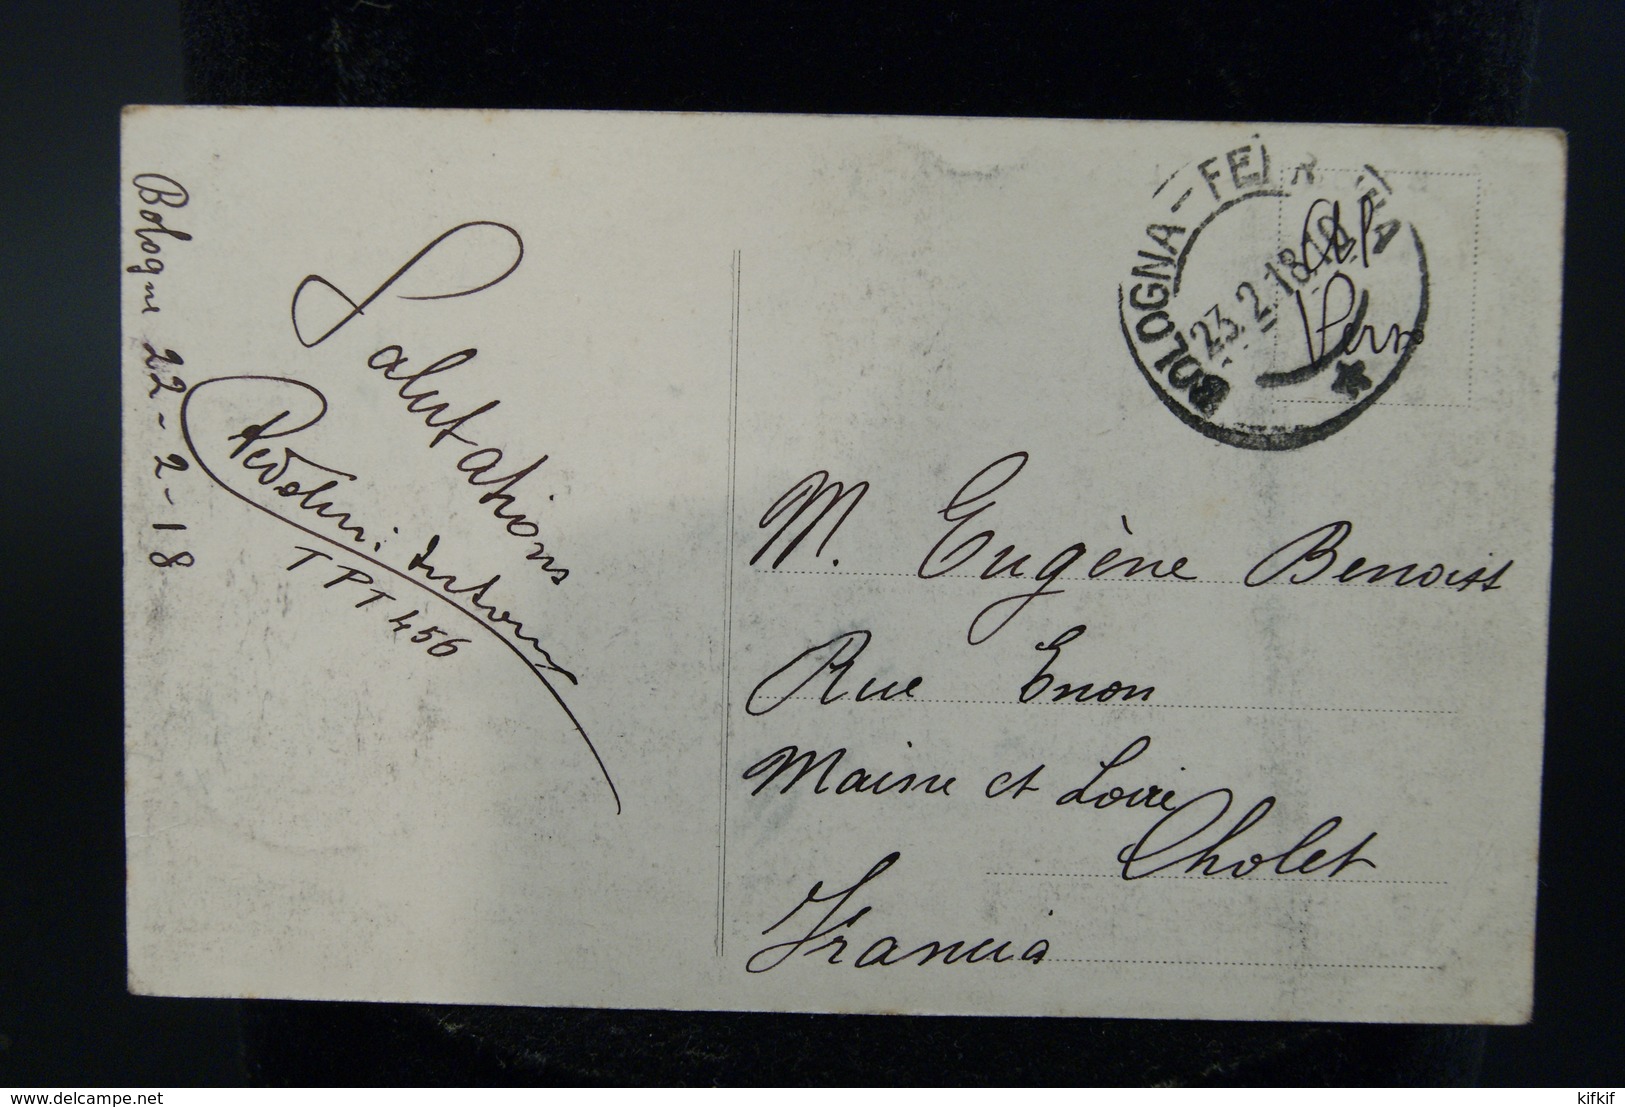 Bologne 22-2-18
Salutations
TPT 456
BOLOGNA-FERROVIA
23.2.18
M. Eugène Benoist
Rue Enon
Maine et Loire
Cholet
Francia
www.delcampe.net
kifkif